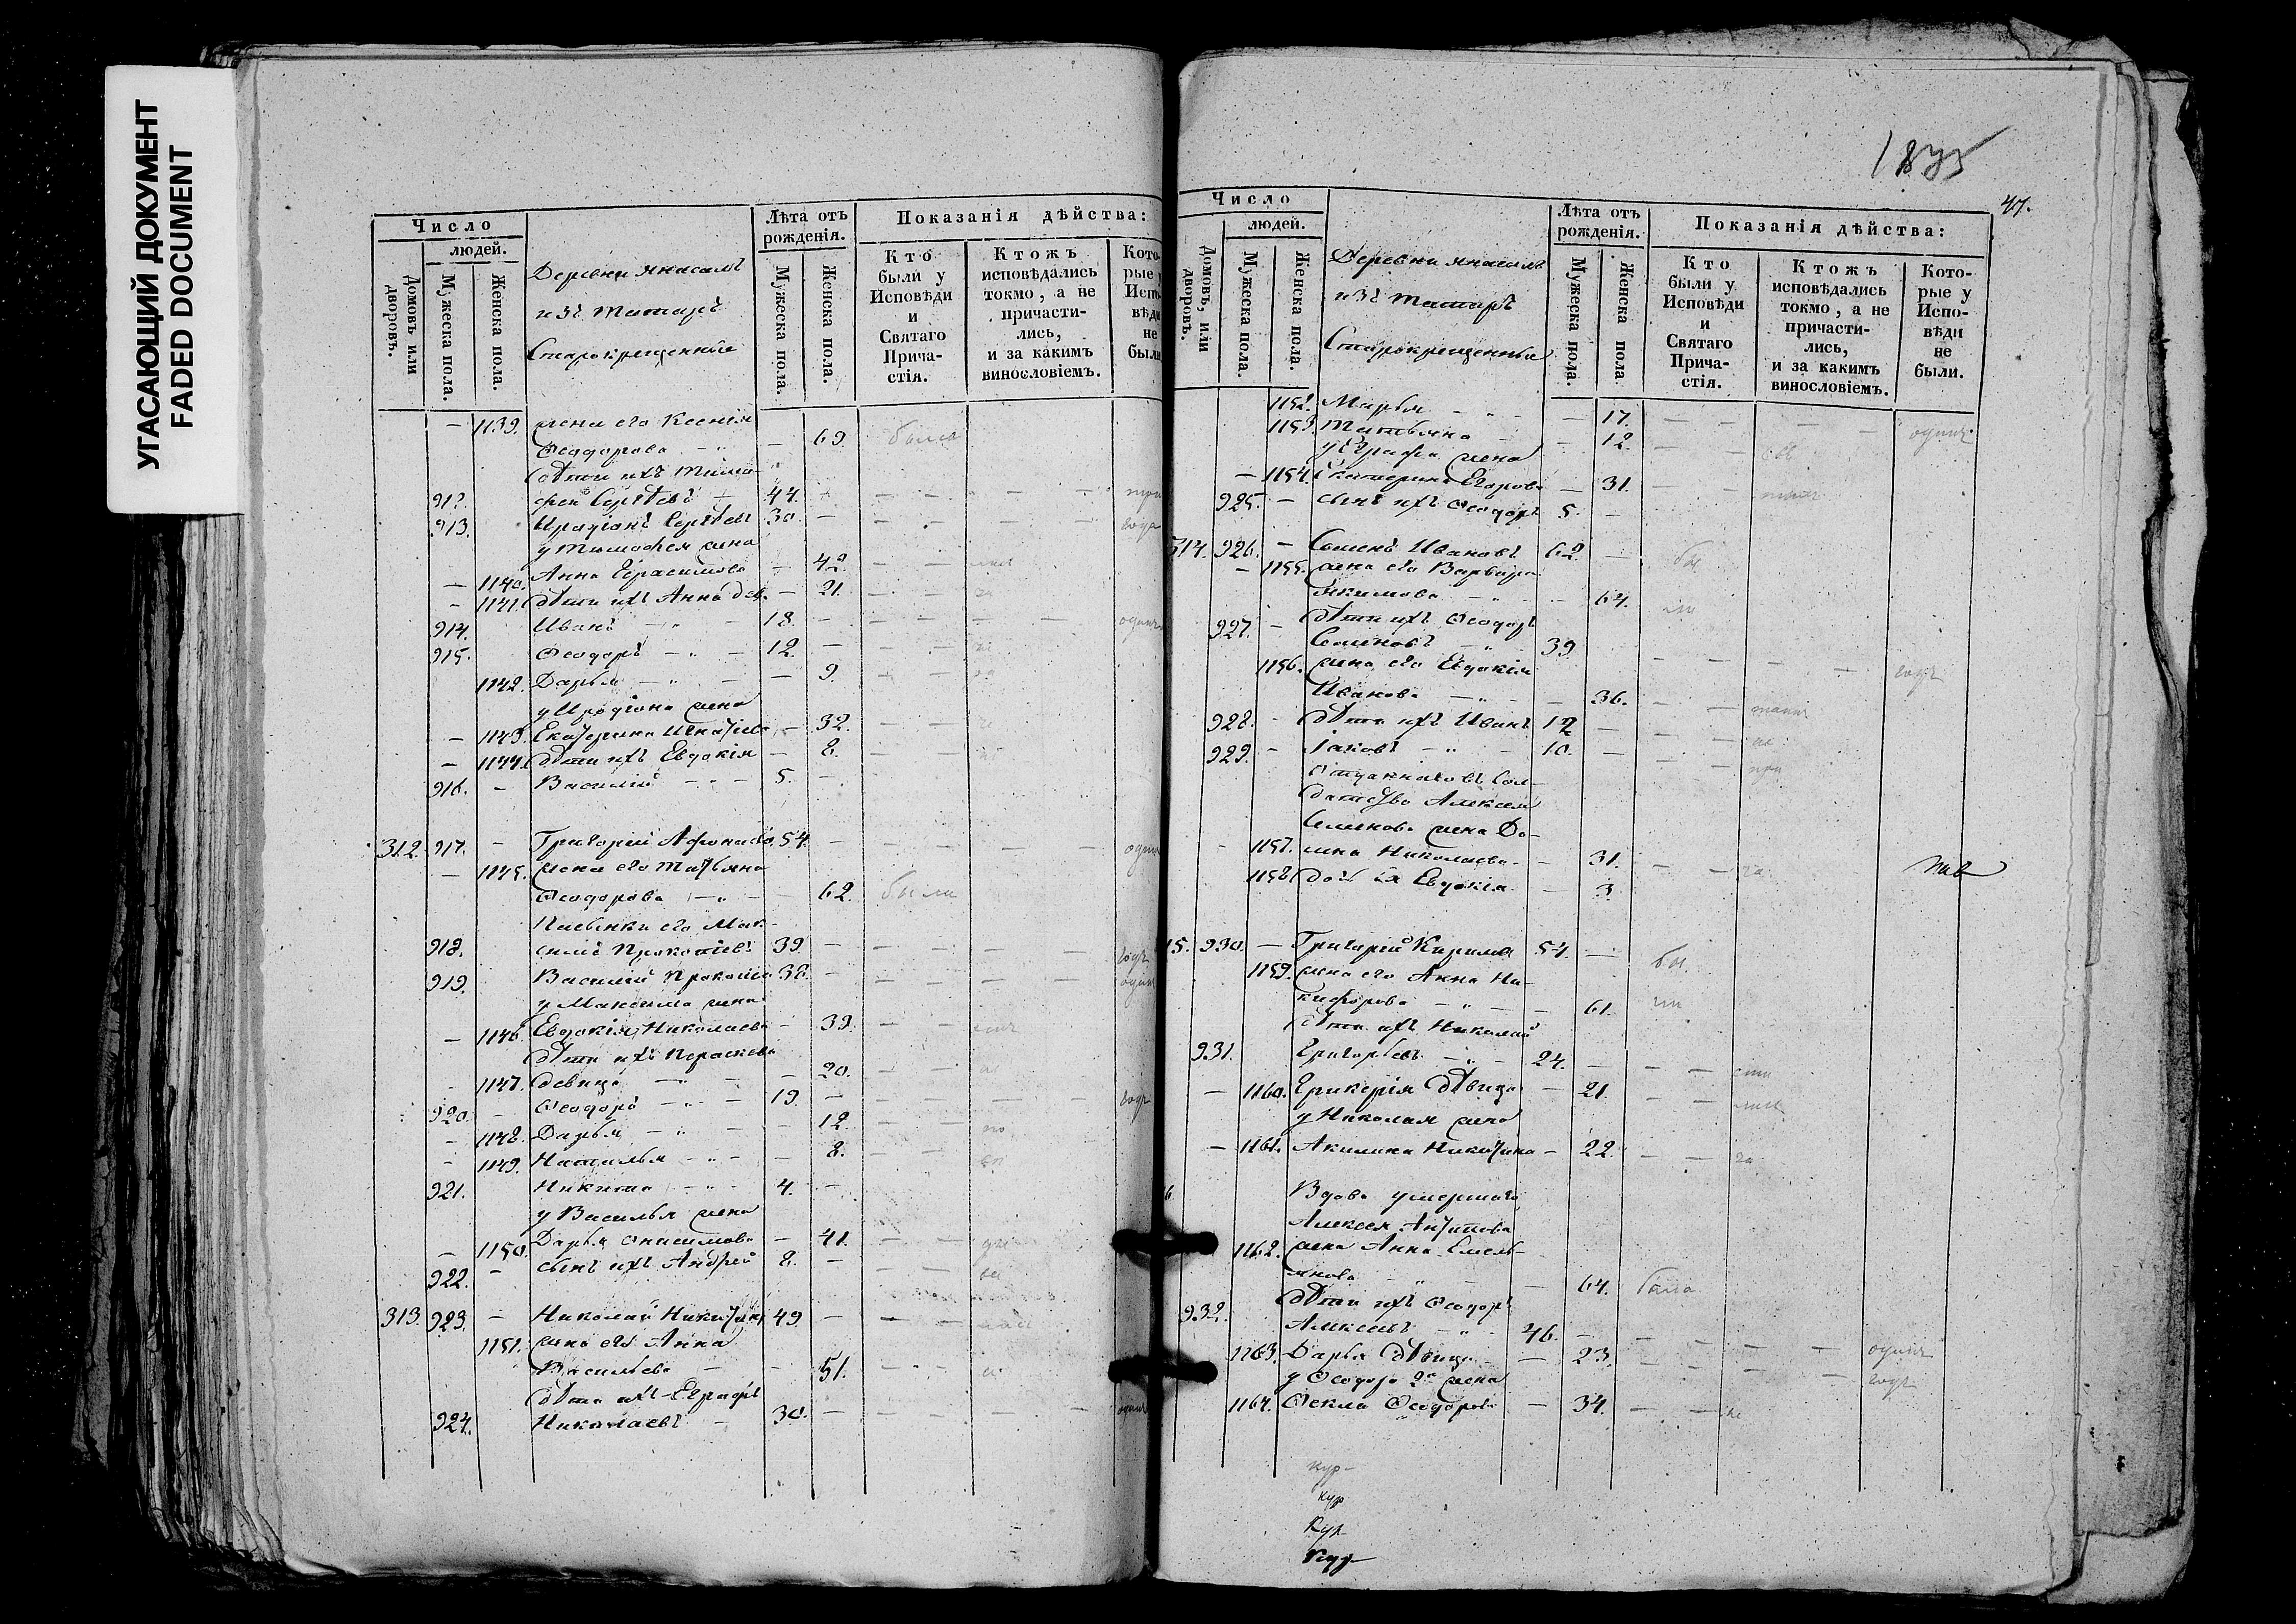 УГАСАЮЩИЙ ДОКУМЕНТ
FADED DOCUMENT
Число
людей.
Домовъ или дворовъ.
Мужеска пола.
Женска пола.
Деревни Янасалъ
изъ Татаръ
Старокрещенные
Лѣта отъ рожденія.
Мужеска пола.
Женска пола.
Показанія дѣйства:
Кто были у Исповѣди и Святаго Прича-стія.
Ктожъ исповѣдались токмо, а не причасти-лись, и за какимъ винословіемъ.
Кото-рые у Испо-вѣди не были
— 1139. жена его Ксенія
Ѳеодорова — 69. была
дѣти ихъ Тимо-
912. фей Сергѣевъ — 44. —
913. Иродіонъ Сергѣевъ 30. —
у Тимофея жена
— 1140. Анна Герасимова — 42
— 1141. дѣти ихъ Анна дев. — 21.
914. Иванъ — 18. —
915. Ѳеодоръ — 12. —
1142. Дарья — 9.
у Иродіона жена
— 1143. Екатерина Игнатьева — 32.
— 1144. дѣти ихъ Евдокія — 8.
916. — Василій — 5. —
312. 917. — Григорій Афонасьевъ 54. —
— 1145. жена его Татьяна
Ѳеодорова — 62. были
Пасынки его Мак-
918. симъ Прокопьевъ 39. —
919. Василій Прокопьевъ 38. —
у Максима жена
— 1146. Евдокія Николаева — 39.
дѣти ихъ Параскева
— 1147. девица — 20.
920. — Ѳеодоръ — 19. —
— 1148. Дарья — 12.
— 1149. Наталья — 8.
921. Никита — 4. —
у Василья жена
— 1150. Дарья Онисимова — 41.
922. — сынъ ихъ Андрей 8. —
313. 923. — Николай Никитинъ 49. —
1151. жена его Анна
Васильева — 51.
дѣти ихъ Евграфъ
924. Николаевъ — 30. —
1835
47.
Число
людей.
Домовъ, или дворовъ.
Мужеска пола.
Женска пола.
Деревни Янасалъ
изъ Татаръ
Старокрещенные
Лѣта отъ рожденія.
Мужеска пола.
Женска пола.
Показанія дѣйства:
Кто были у Исповѣди и Святаго Прича-стія.
Ктожъ исповѣдались токмо, а не причасти-лись, и за какимъ винословіемъ.
Кото-рые у Испо-вѣди не были.
1152. Марья — 17.
1153. Татьяна — 12.
у Евграфа жена
— 1154. Екатерина Егорова — 31.
925. — сынъ ихъ Ѳеодоръ 5. —
314. 926. — Семенъ Ивановъ 62. — бы
— 1155. жена его Варвара
Якимова — 64. ли
927. — дѣти ихъ Ѳеодоръ
Семеновъ — 39
1156. жена его Евдокія
Иванова — 36.
928. — дѣти ихъ Иванъ 12 —
929. — Іаковъ — 10. —
Отданнаго въ Сол-
датство Алексея
Семенова жена До-
— 1157. мна Николаева — 31.
1158. дочь ея Евдокія — 3.
15. 930. — Григорій Кирилов 54. — бы
1159. жена его Анна Ни-
кифорова — 61. ли
дѣти ихъ Николай
931. Григорьевъ — 24.
— 1160. Гликерія дѣвица — 21.
у Николая жена
— 1161. Акилина Никитина — 22.
6 Вдова умершаго
Алексея Антипова
1162. жена Анна Емель-
янова — 64. была
932. дѣти ихъ Ѳеодоръ
Алексеевъ — 46. —
1163. Дарья дѣвица — 23.
у Ѳеодора 2я жена
1164. Ѳекла Ѳеодорова — 34.